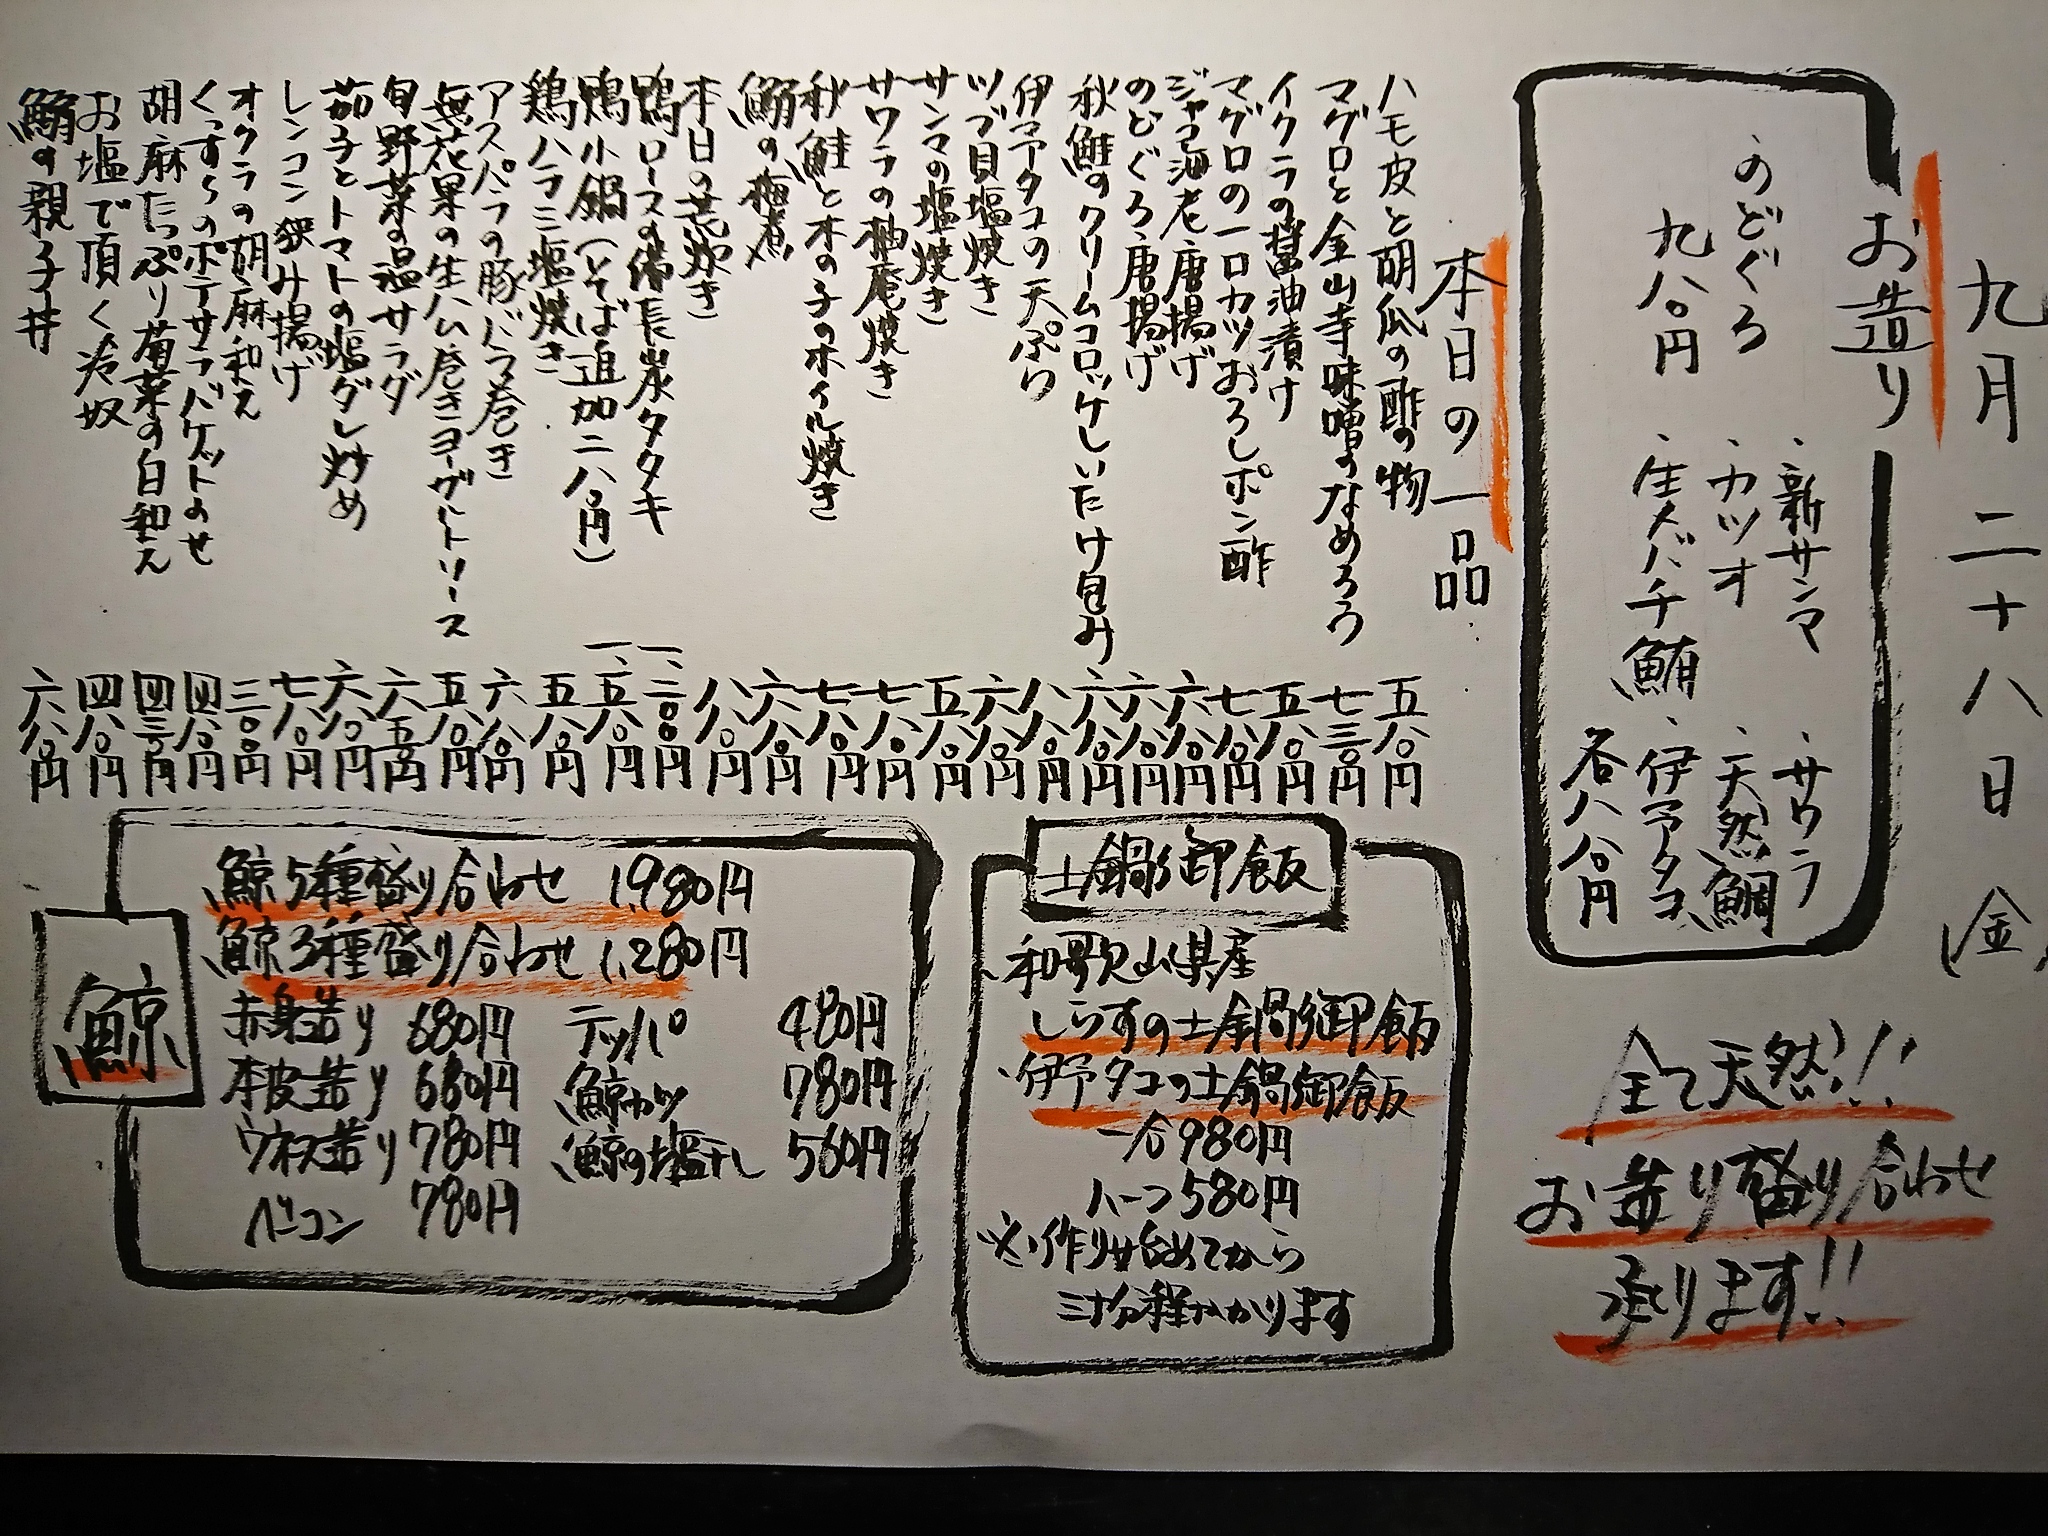 九月二十八日(金)
お造り
・新サンマ
・サワラ
・カツオ
・天然鯛
・生メバチ鮪
・伊予タコ
各八八〇円
・のどぐろ
九八〇円
全て天然!!
お造り盛り合わせ
承ります!!
本日の一品
ハモ皮と胡瓜の酢の物 五八〇円
マグロと金山寺味噌のなめろう 七三〇円
イクラの醤油漬け 五八〇円
マグロの一口カツおろしポン酢 七八〇円
ジャコ海老唐揚げ 六八〇円
のどぐろ唐揚げ 六八〇円
秋鮭のクリームコロッケしいたけ包み 六八〇円
伊予タコの天ぷら 八八〇円
ツブ貝塩焼き 六八〇円
サンマの塩焼き 五八〇円
サワラの柚庵焼き 七八〇円
秋鮭と木の子のホイル焼き 七八〇円
鰯の梅煮 六八〇円
本日の荒炊き 八八〇円
鴨ロースの備長炭タタキ 一、二〇〇円
鴨小鍋(そば追加二八〇円) 一、五八〇円
鶏ハラミ塩焼き 五八〇円
アスパラの豚バラ巻き 六八〇円
無花果の生ハム巻きヨーグルトソース 五八〇円
旬野菜の温サラダ 六五〇円
茄子とトマトの塩ダレ炒め 六八〇円
レンコン挟み揚げ 七八〇円
オクラの胡麻和え 三〇〇円
くっすらのポテサラバケットのせ 四八〇円
胡麻たっぷり菊菜の白和え 四三〇円
お塩で頂く冷奴 四八〇円
鰯の親子丼 六八〇円
土鍋御飯
・和歌山県産
しらすの土鍋御飯
・伊予タコの土鍋御飯
一合980円
ハーフ580円
※作り始めてから
三十分程かかります
鯨
鯨5種盛り合わせ 1,980円
鯨3種盛り合わせ 1,280円
赤身造り 680円
本皮造り 680円
ウネス造り 780円
ベーコン 780円
テッパ 480円
鯨カツ 780円
鯨の塩干し 560円